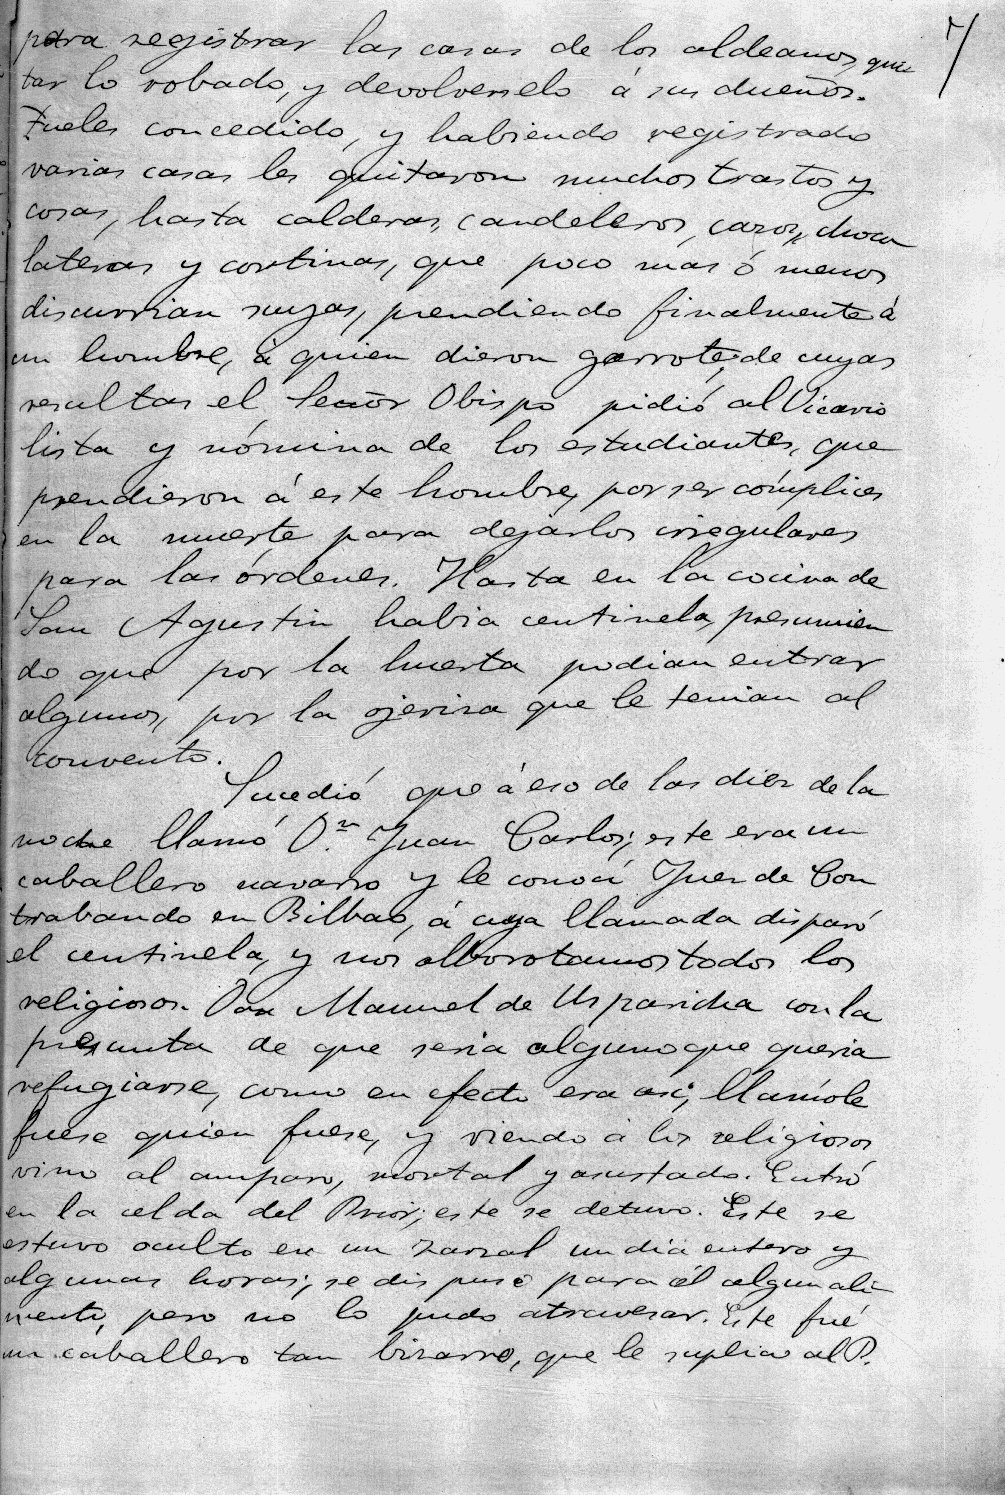 7
para registrar las casas de los aldeanos, qui
tar lo robado, y devolverselo á sus dueños.
Fueles concedido, y habiendo registrado
varias casas les quitaron muchos trastos y
cosas, hasta calderas, candeleros, cazos, choco
lateras y cortinas, que poco mas ó menos
discurrian suyas, prendiendo finalmente á
un hombre, á quien dieron garrote; de cuyas
resultas el Señor Obispo pidió al Vicario
lista y nómina de los estudiantes, que
prendieron á este hombre, por ser cómplices
en la muerte para dejarlos irregulares
para las órdenes. Hasta en la cocina de
San Agustin habia centinela, presumien
do que por la huerta podian entrar
algunos, por la ojeriza que le tenian al
convento.
Sucedió que á eso de las diez de la
noche llamó Dn. Juan Carlos; este era un
caballero navarro y le conocí Juez de Con
trabando en Bilbao, á cuya llamada disparó
el centinela, y nos alborotamos todos los
religiosos. Don Manuel de Uspericha con la
presunta de que seria alguno que queria
refugiarse, como en efecto era asi; llamóle
fuese quien fuese, y viendo á los religiosos
vino al amparo, mortal y asustado. Entró
en la celda del Prior; este se detuvo. Este se
estuvo oculto en un zarzal un dia entero y
algunas horas; se dispuso para él algun ali
mento, pero no lo pudo atravesar. Este fué
un caballero tan bizarro, que le suplicó al P.